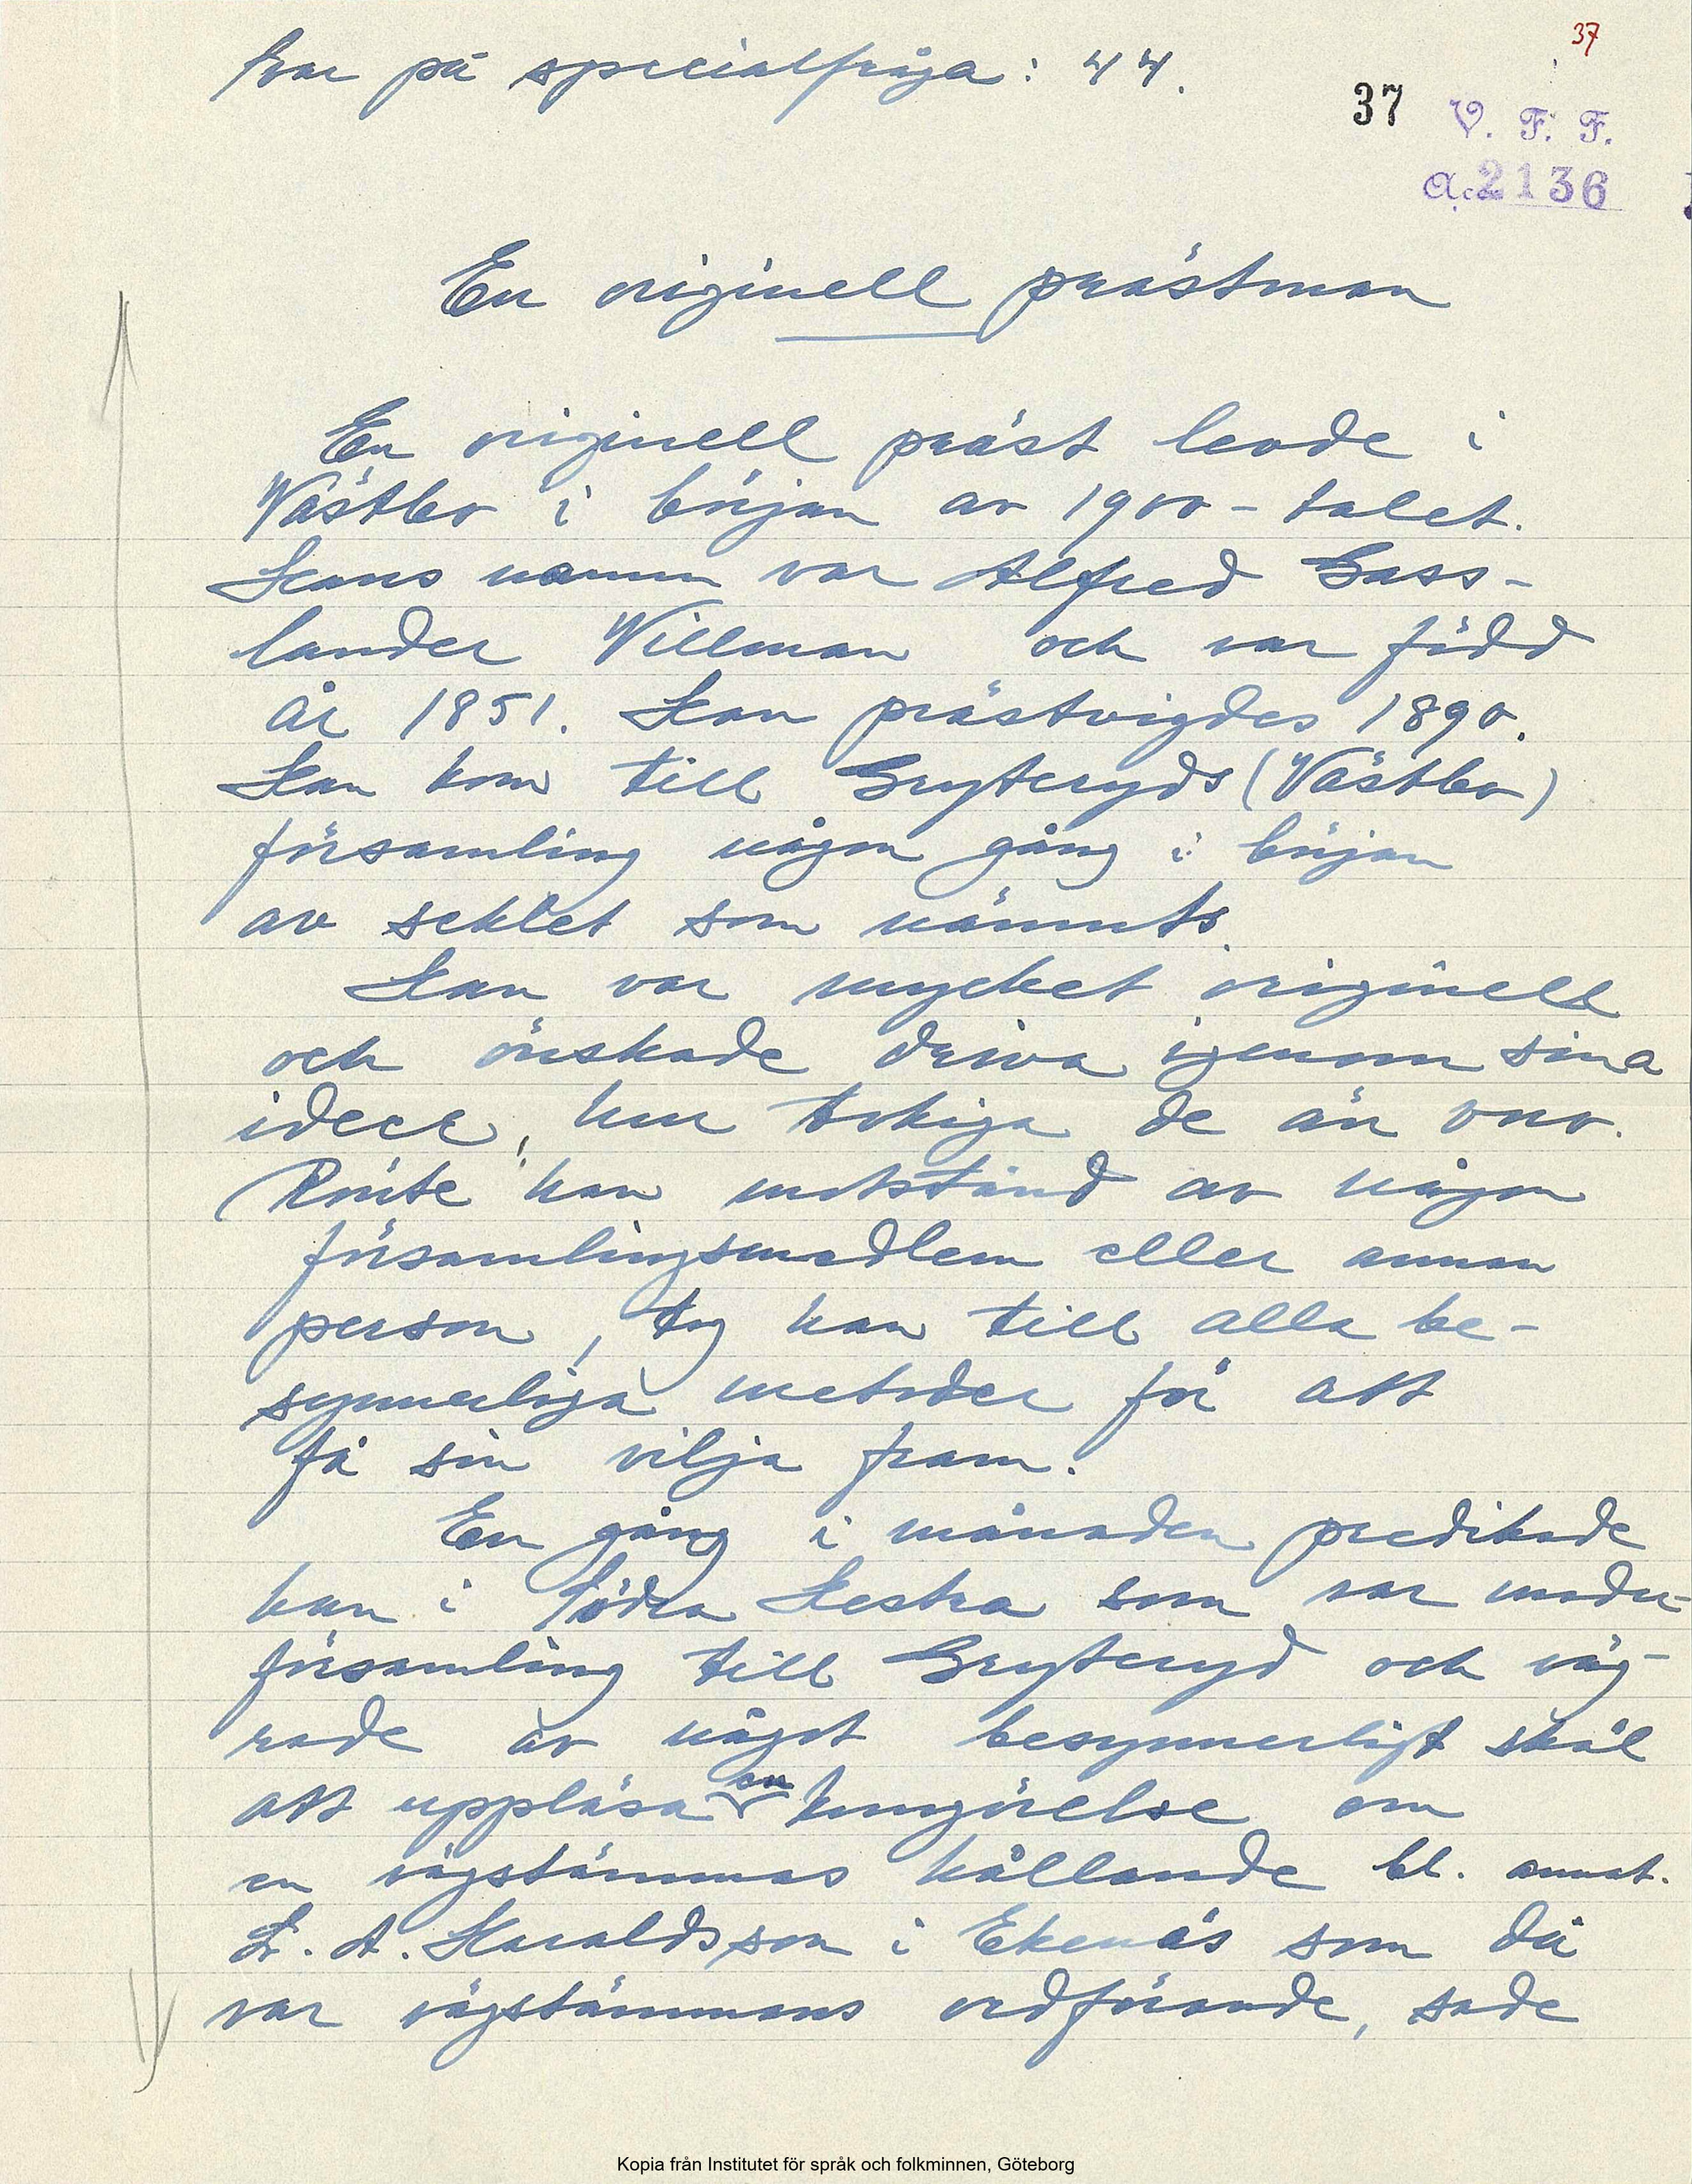 37
Svar på specialfråga: 44.
37 V. F. F.
Acc. 2136
En originell prästman
En originell präst levde i
Västbo i början av 1900-talet.
Hans namn var Alfred Gass-
lander Willman och var född
år 1851. Han prästvigdes 1890.
Han kom till Gryteryds (Västbo)
församling någon gång i början
av seklet som nämnts.
Han var mycket originell
och önskade driva igenom sina
ideer, hur tokiga de än voro.
Rönte han motstånd av någon
församlingsmedlem eller annan
person, tog han till alla be-
synnerliga metoder för att
få sin vilja fram.
En gång i månaden predikade
han i Södra Hestra som var moder-
församling till Gryteryd och väg-
rade av något besynnerligt skäl
att uppläsa en kungörelse om
en vägstämmas hållande bl. annat.
L. A. Haraldsson i Ekenäs som då
var vägstämmans ordförande, sade
Kopia från Institutet för språk och folkminnen, Göteborg